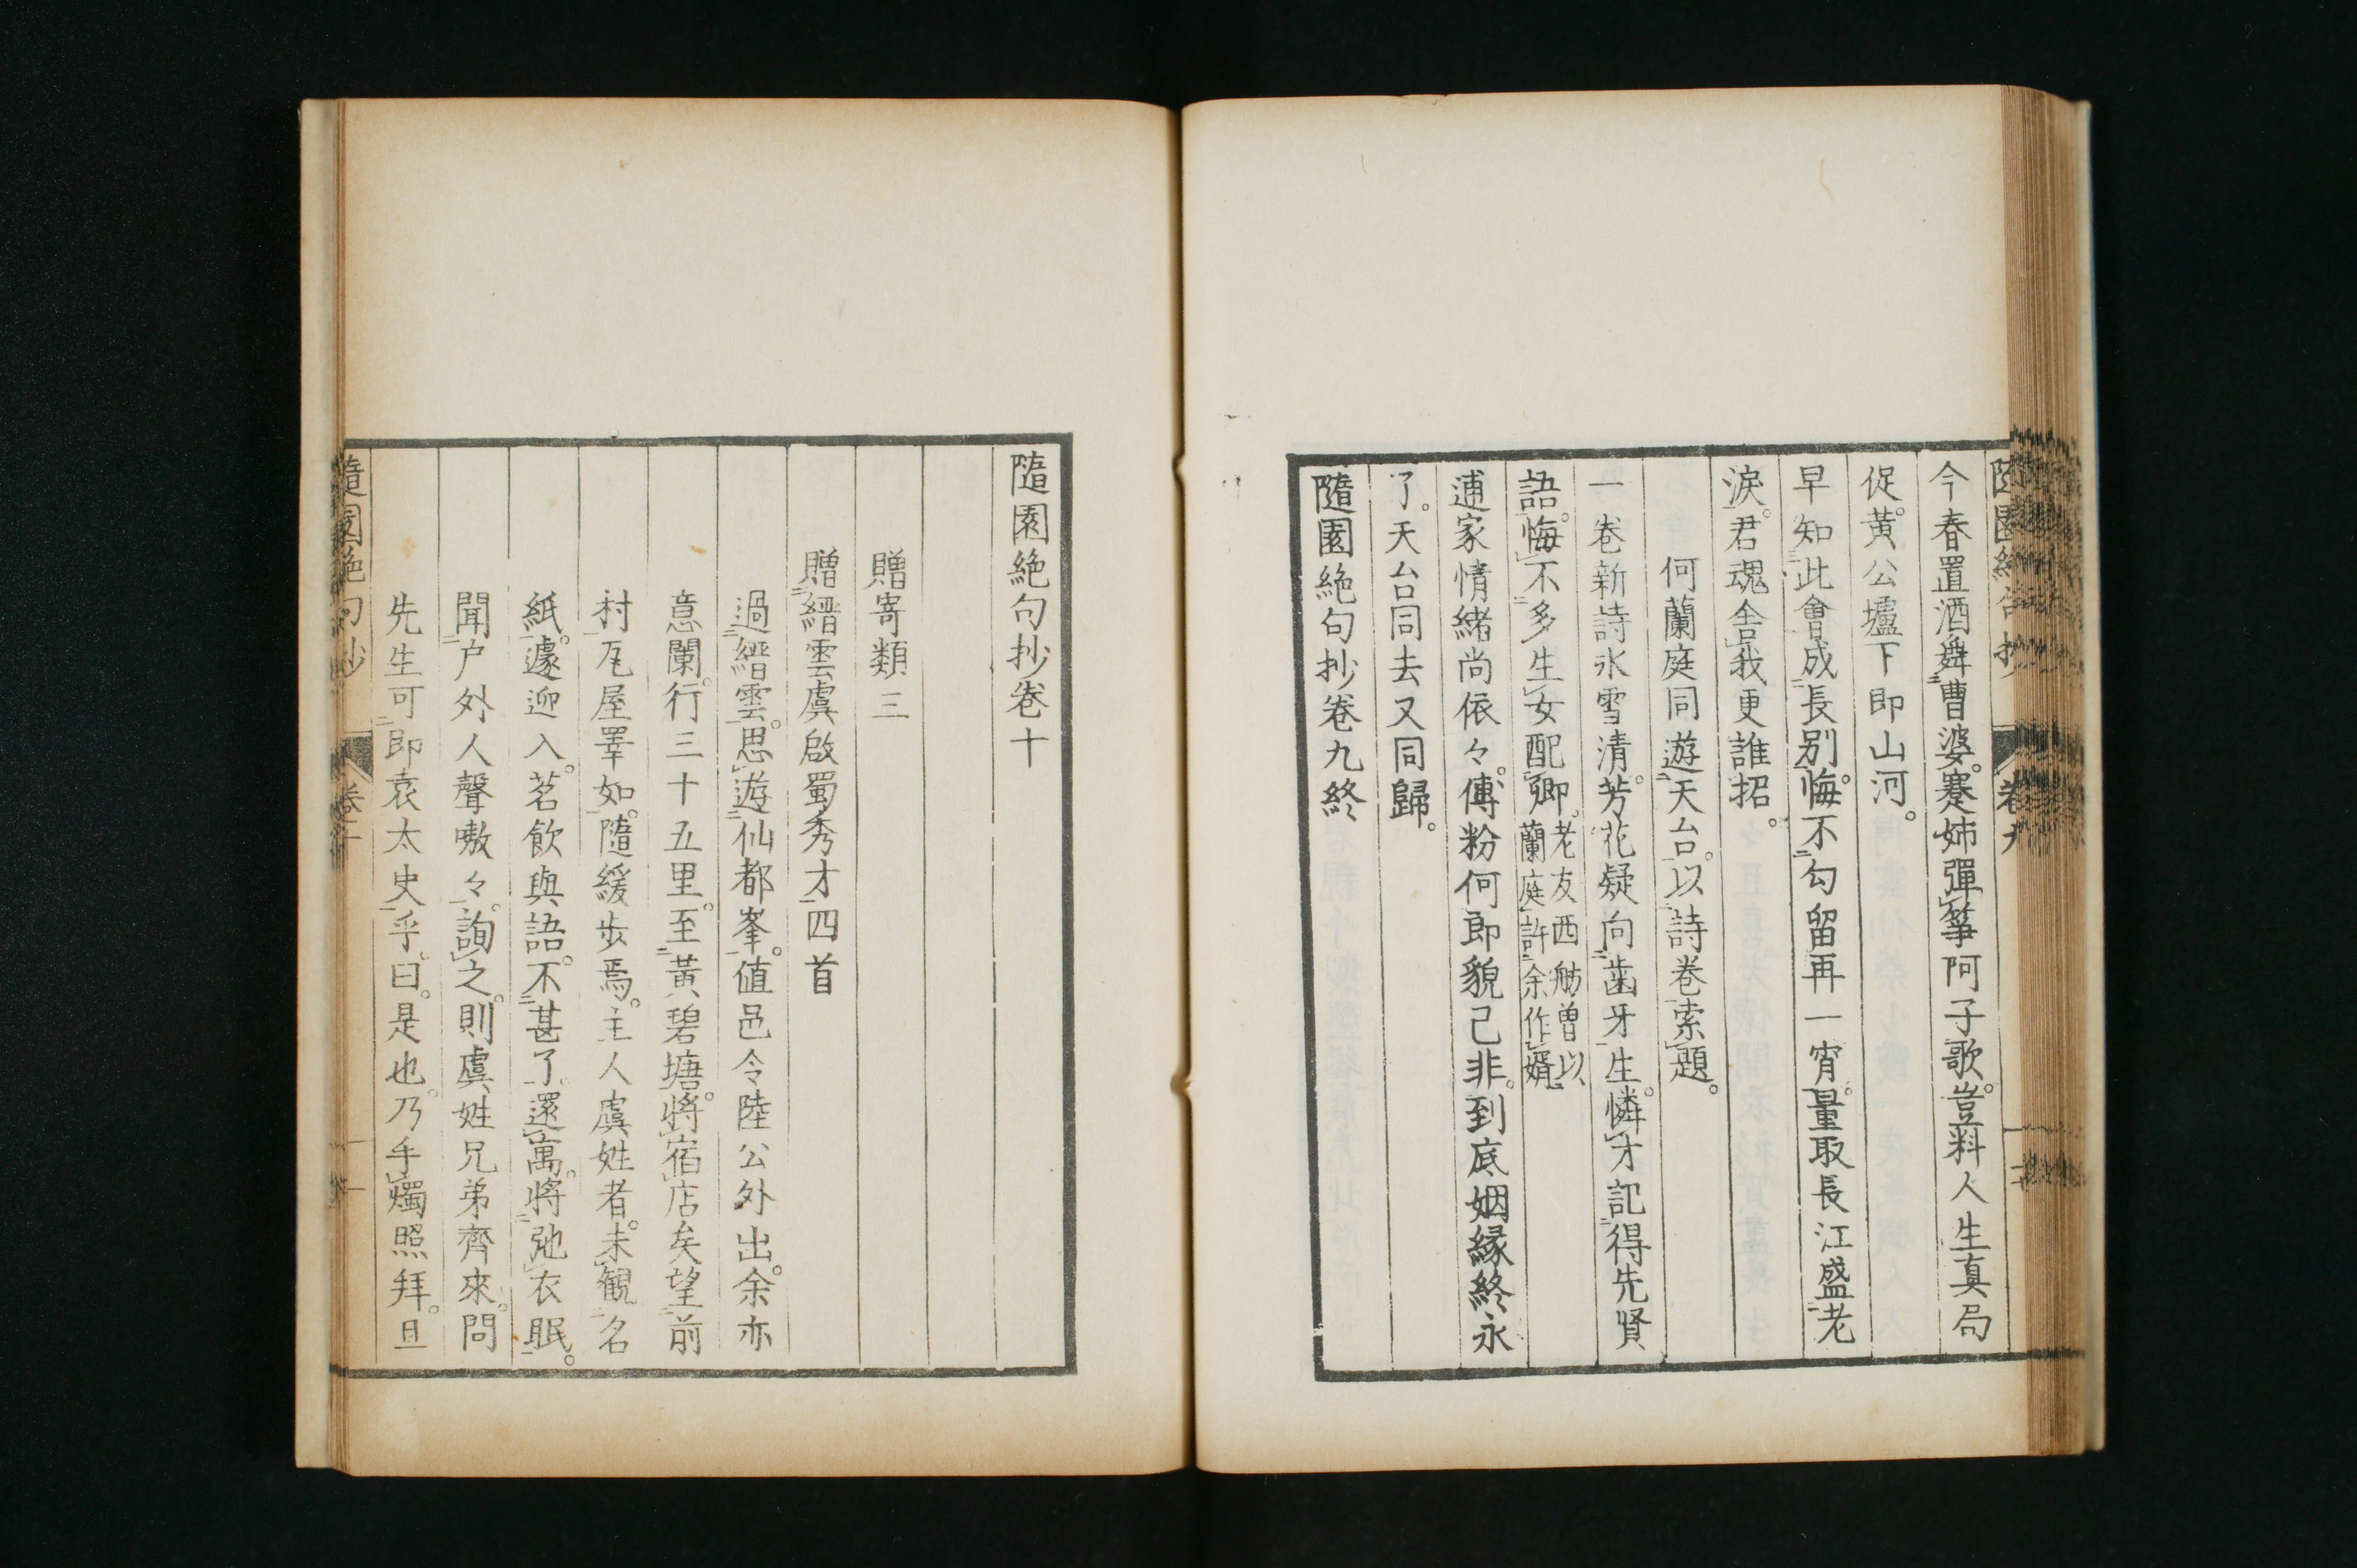 今春置酒舞曹婆。蹇姊彈箏阿子歌。豈料人生真局
促。黃公壚下即山河。
早知此會成長別。悔不勾留再一宵。量取長江盛老
淚。君魂舍我更誰招。
何蘭庭同遊天台。以詩卷索題。
一卷新詩氷雪清。芳花疑向歯牙生。憐才記得先賢
語。悔不多生女配卿。老友西舫曽以
蘭庭許余作婿
逋家情緒尚依々。傅粉何郎貌已非。到底姻縁終永
了。天台同去又同歸。
隨園絶句抄卷九終
隨園絶句抄卷十
贈寄類三
贈縉雲虞啟蜀秀才四首
過縉雲。思遊仙都峯。值邑令陸公外出。余亦
意闌。行三十五里。至黃碧塘。將宿店矣望前
村瓦屋睪如。隨緩步焉。主人虞姓者。未觀名
紙。遽迎入。茗飲與語。不甚了。還寓。將弛衣眠。
聞户外人聲嗷々。詢之。則虞姓兄弟齊來。問
先生可即袁太史乎。曰。是也。乃手燭照拜。且
隨園絶句抄